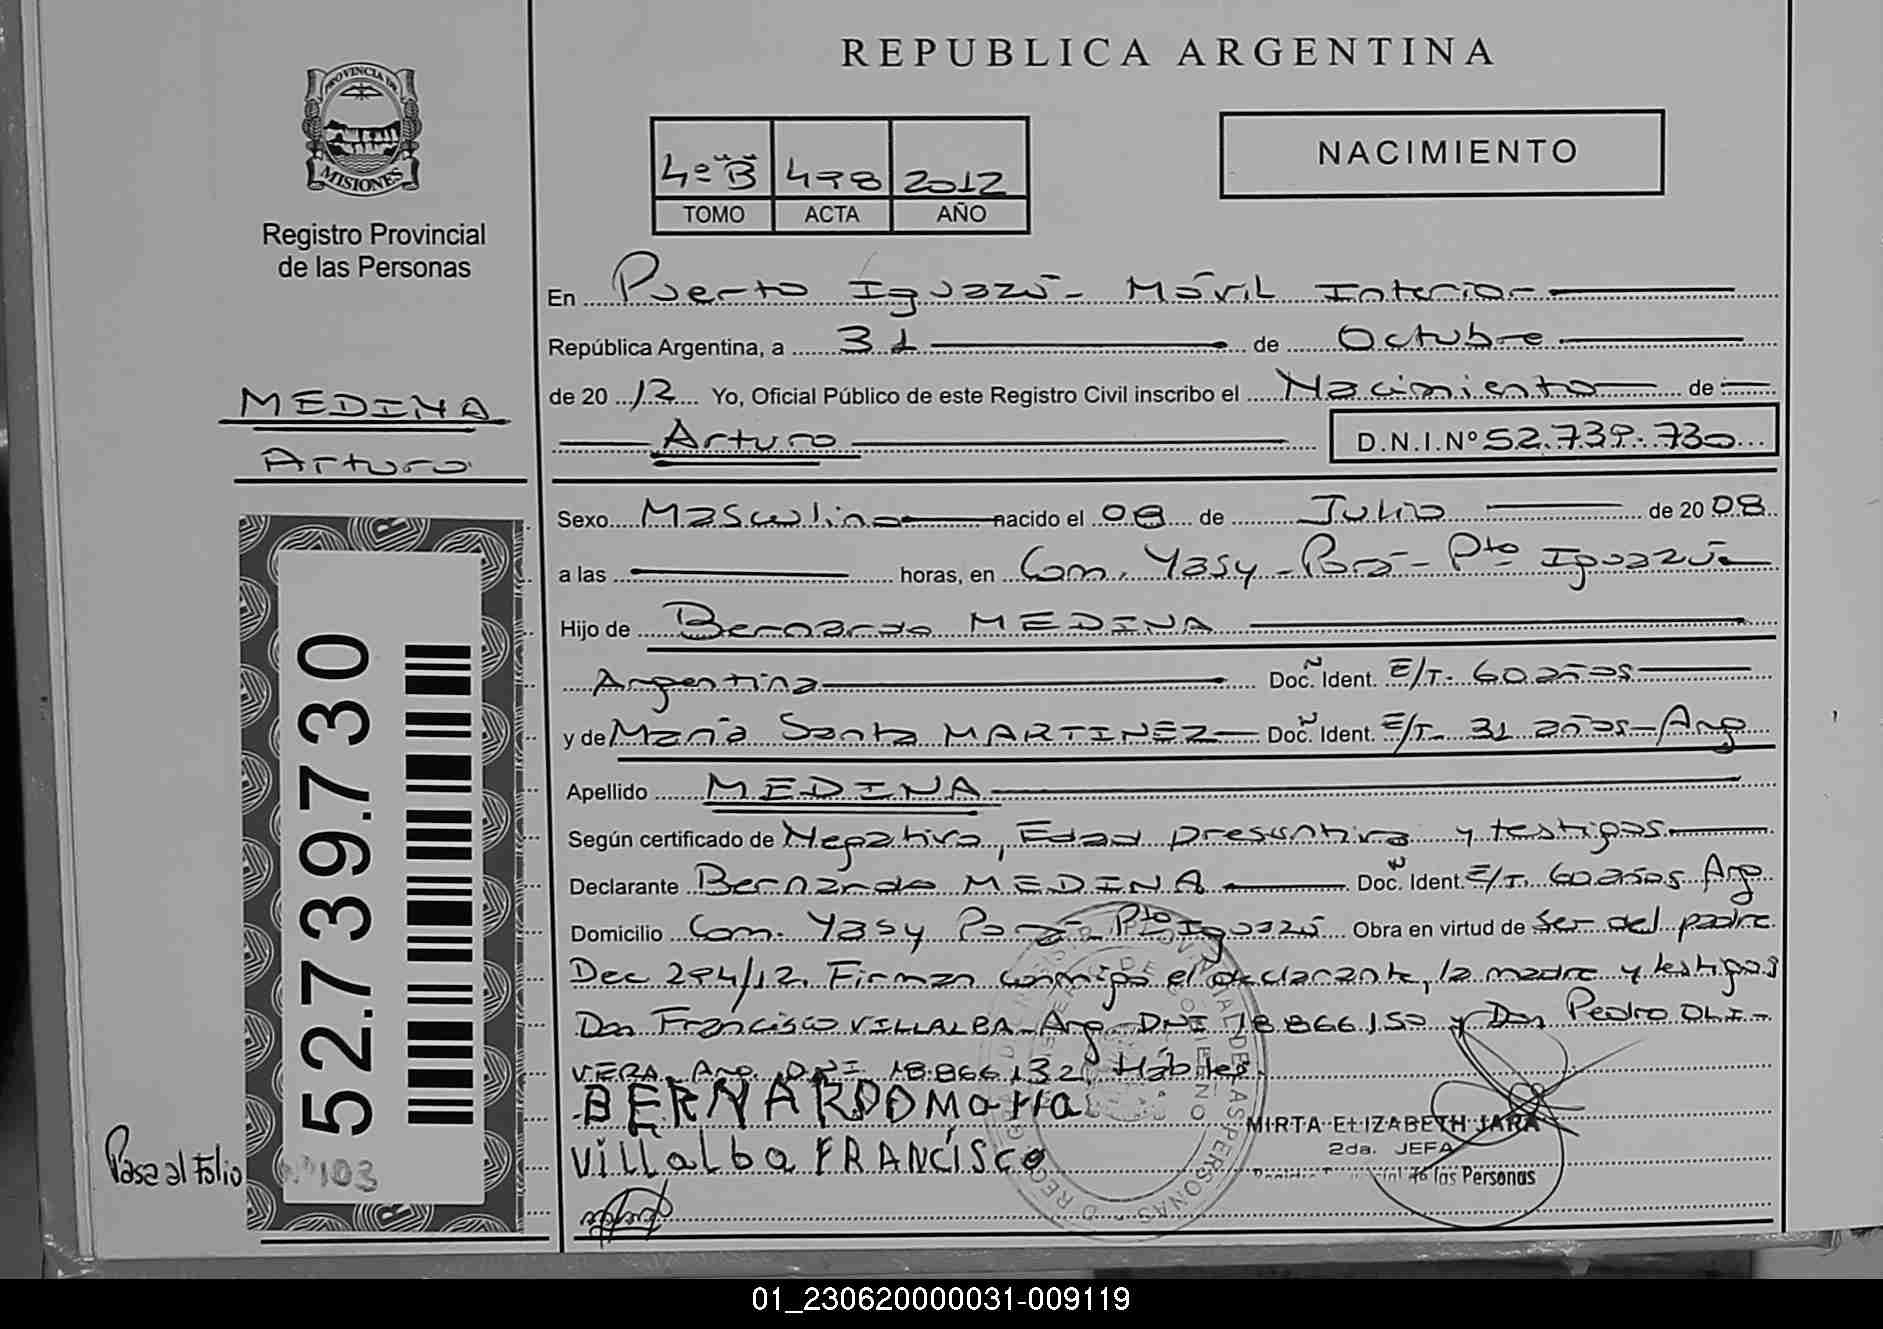 REPUBLICA ARGENTINA
PROVINCIA DE
MISIONES
Registro Provincial
de las Personas
4º "B" 498 2012
TOMO ACTA AÑO
NACIMIENTO
En Puerto Iguazú - Móvil Interior
República Argentina, a 31 de Octubre
de 20 12 Yo, Oficial Público de este Registro Civil inscribo el Nacimiento de
Arturo D.N.I.Nº 52.739.730
MEDINA
Arturo
Sexo Masculino nacido el 08 de Julio de 20 08
a las horas, en Com. Yasy-Porá - Pto Iguazú
Hijo de Bernardo MEDINA
Argentina Doc. Ident. E/T. 60 años
y de María Santa MARTINEZ Doc. Ident. E/T. 31 años - Arg
Apellido MEDINA
Según certificado de Negativo, Edad presuntiva y testigos.
Declarante Bernardo MEDINA Doc. Ident. E/T. 60 años Arg
Domicilio Com. Yasy Porá Pto Iguazú Obra en virtud de Ser del padre
Dec 294/12. Firman conmigo el declarante, la madre y testigos
Don Francisco VILLALBA - Arg DNI 18.866.150 y Don Pedro OLI-
VERA Arg. DNI 18.866.132, Hábiles.
BERNARDO Maria
Villalba FRANCISCO
MIRTA ELIZABETH JARA
2da. JEFA
de las Personas
52.739.730
Pasa al Folio
Nº 103
01_230620000031-009119